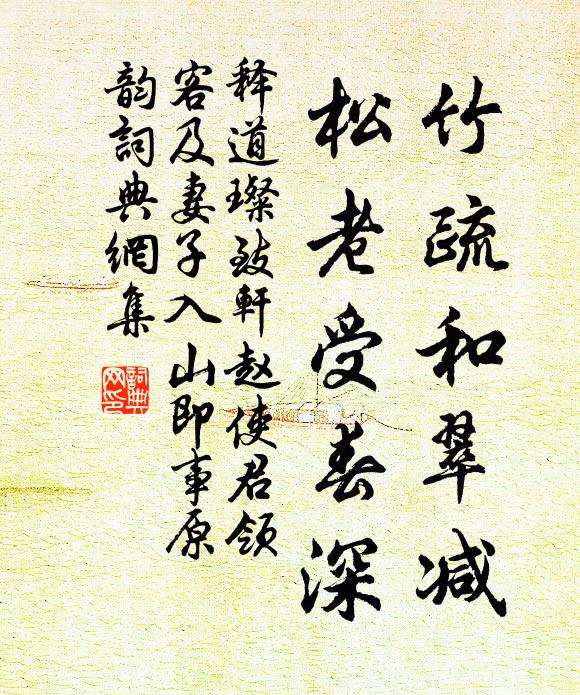 竹疏和翠减
松老受春深
释道璨致軒赵使君领
客及妻子入山即事原
韵詞典網集
詞典
网印